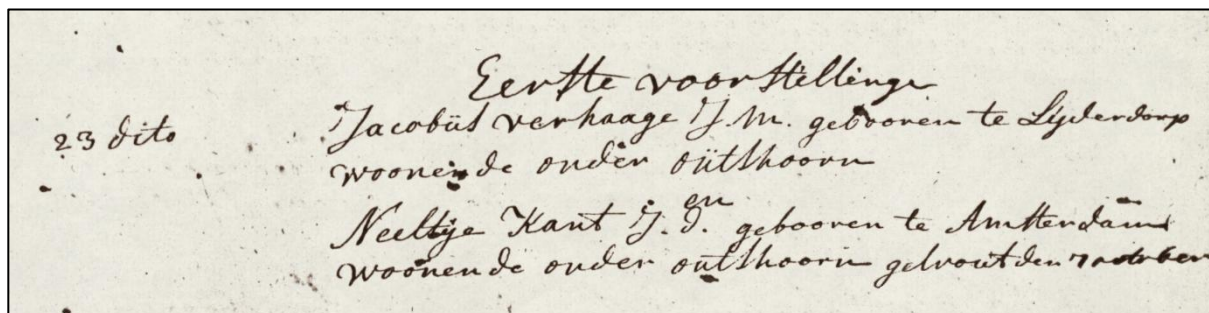 Eerste voorstellinge
23 dito Jacobüs verhaage J.M. gebooren te Lyderdorp
woonende onder oütshoorn
en
Neeltje Kant J.d. gebooren te Amsterdam
woonende onder oütshoorn getrout den 7 october